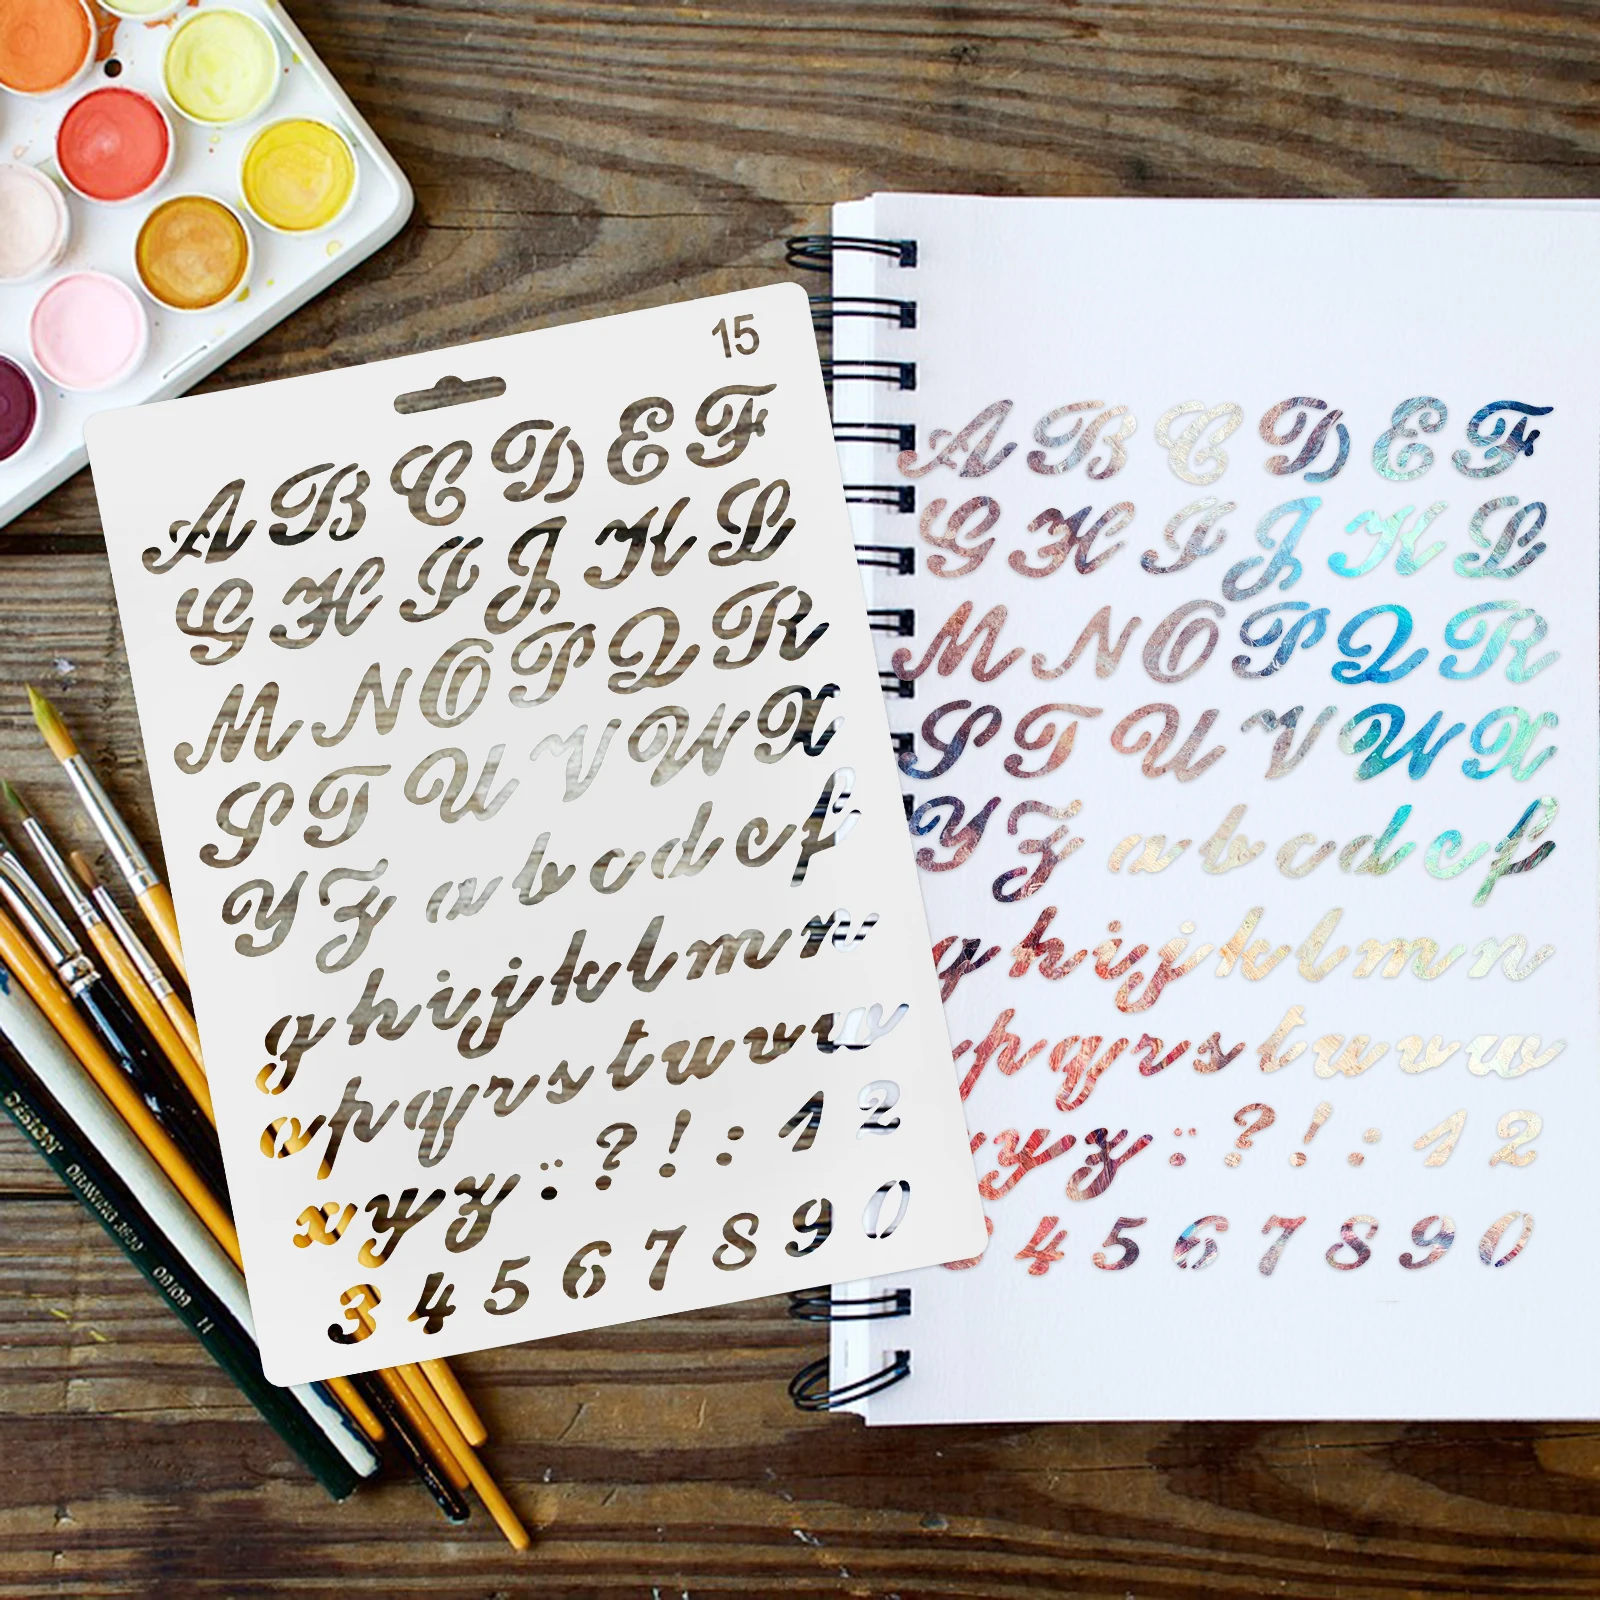 15
A B C D E F
G H I J K L
M N O P Q R
S T U V W X
Y Z a b c d e f
g h i j k l m n
o p q r s t u v w
x y z : ? ! : 1 2
3 4 5 6 7 8 9 0
A B C D E F
G H I J K L
M N O P Q R
S T U V W X
Y Z a b c d e f
g h i j k l m n
p q r s t u v w
y z : ? ! : 1 2
3 4 5 6 7 8 9 0
DESIGN DRAWING 3800 ORION 11